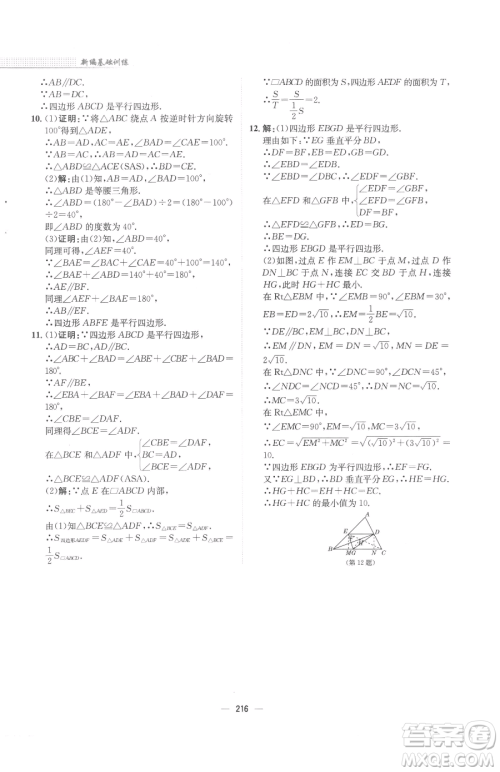 新编基础训练
∴AB=DC.
∴AB∥DC.
∴四边形 ABCD 是平行四边形.
10. (1)证明:∵将△ABC 绕点 A 按逆时针方向旋转
100°得到△ADE,
∴AB=AD,AC=AE,∠BAD=∠CAE=100°.
又∵AB=AC,∴AB=AC=AD=AE.
∴△ABD≌△ACE(SAS).
(2)解:由(1)知,AB=AD,∠BAD=100°,
∴△ABD 是等腰三角形.
∴∠ABD=(180°-∠BAD)÷2=(180°-100°)
÷2=40°.
即∠ABD 的度数为 40°.
(3)证明:由(2)知,∠ABD=40°.
同理可得,∠AEF=40°.
∵∠BAE=∠BAC+∠CAE=40°+100°=140°,
∴∠ABD+∠BAE=40°+140°=180°.
∴AE∥BF.
同理可得,AB∥EF.
∴四边形 ABFE 是平行四边形.
11. (1)证明:∵四边形 ABCD 是平行四边形,
∴AD=BC,AD∥BC.
∴∠EBA+∠ABC+∠BAD=
180°.
又∵AF∥BE,
∴∠EBA+∠BAF=180°.
∴∠CBE=∠DAF.
同理得∠BCE=∠ADF.
在△BCE 和△ADF 中 {∠CBE=∠DAF,
BC=AD,
∠BCE=∠ADF,
∴△BCE≌△ADF(ASA).
(2)解:∵点 E 在□ABCD 内部,
∴S△BEC+S△AED=1/2 S□ABCD.
由(1)知△BCE≌△ADF,∴S△BCE=S△ADF.
∴S四边形AEDF=S△ADF+S△ADE=S△BCE+S△ADE=
1/2 S□ABCD.
∵□ABCD 的面积为 S,四边形 AEDF 的面积为
T,∴S/T=S/(1/2 S)=2.
12. 解:(1)四边形 EBGD 是平行四边形.
理由如下:∵EG 垂直平分 BD,
∴DF=BF,DG=BG.
∴∠EBD=∠EDF=∠GBF.
在△EFD 和△GFB 中, {∠EDF=∠GBF,
DF=BF,
∴△EFD≌△GFB.
∴BE=DG.
∴四边形 EBGD 是平行四边形.
(2)如图,过点 E 作 EM⊥BC 于点 M,过点 D 作
DN⊥BC 于点 N,连接 EC 交 BD 于点 H,
此时 HG+HC 最小.
在 Rt△EBM 中,∵∠EMB=90°,∠EBM=30°,
∴EM=1/2 BE=√10.
∵DE∥BC,EM⊥BC,DN⊥BC,
∴EM∥DN,EM=DN=√10,MN=DE=2√10.
在 Rt△DNC 中,∵∠DNC=90°,∠DCN=45°,
∴∠NDC=∠NCD=45°,∴DN=NC=√10.
∴MC=3√10.
在 Rt△EMC 中,
∵∠EMC=90°,EM=√10,MC=3√10,
∴EC=√(EM²+MC²)=√((√10)²+(3√10)²)=
10.
又∵BD、EG 互相垂直平分,∴HG=HE.
∴HG+HC=EH+HC=EC=10.
∴HG+HC 的最小值为 10.
A
E
D
H
B
MG
N
C
(第12题)
216